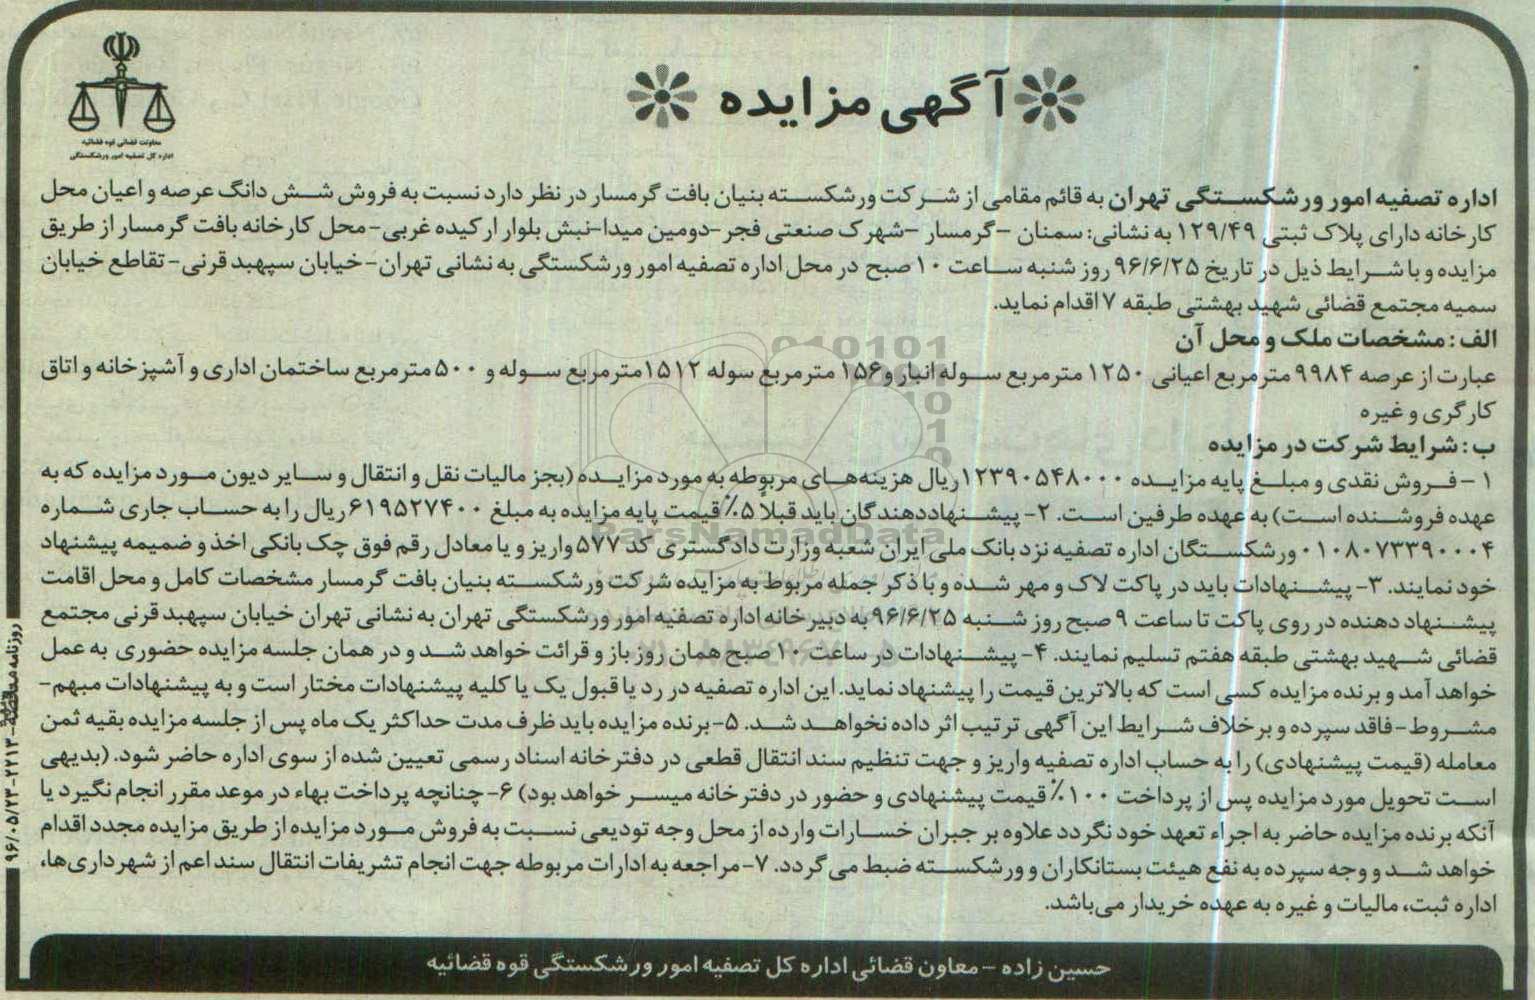 معاونت قضائی قوه قضائیه
اداره کل تصفیه امور ورشکستگی
آگهی مزایده
اداره تصفیه امور ورشکستگی تهران به قائم مقامی از شرکت ورشکسته بنیان بافت گرمسار در نظر دارد نسبت به فروش شش دانگ عرصه و اعیان محل
کارخانه دارای پلاک ثبتی ۱۲۹/۴۹ به نشانی: سمنان –گرمسار –شهرک صنعتی فجر-دومین میدا-نبش بلوار ارکیده غربی-محل کارخانه بافت گرمسار از طریق
مزایده و با شرایط ذیل در تاریخ ۹۶/۶/۲۵ روز شنبه ساعت ۱۰ صبح در محل اداره تصفیه امور ورشکستگی به نشانی تهران-خیابان سپهبد قرنی-تقاطع خیابان
سمیه مجتمع قضائی شهید بهشتی طبقه ۷ اقدام نماید.
الف: مشخصات ملک و محل آن
عبارت از عرصه ۹۹۸۴ مترمربع اعیانی ۱۲۵۰ مترمربع سوله انبار و ۱۵۶ مترمربع سوله ۱۵۱۲ مترمربع سوله و ۵۰۰ مترمربع ساختمان اداری و آشپزخانه و اتاق
کارگری و غیره
ب: شرایط شرکت در مزایده
۱ – فروش نقدی و مبلغ پایه مزایده ۱۲۳۹۰۵۴۸۰۰۰ ریال هزینه‌های مربوطه به مورد مزایده (بجز مالیات نقل و انتقال و سایر دیون مورد مزایده که به
عهده فروشنده است) به عهده طرفین است. ۲- پیشنهاددهندگان باید قبلاً ۵٪ قیمت پایه مزایده به مبلغ ۶۱۹۵۲۷۴۰۰ ریال را به حساب جاری شماره
۰۱۰۸۰۷۳۳۹۰۰۰۴ ورشکستگان اداره تصفیه نزد بانک ملی ایران شعبه وزارت دادگستری کد ۵۷۷ واریز و یا معادل رقم فوق چک بانکی اخذ و ضمیمه پیشنهاد
خود نمایند. ۳- پیشنهادات باید در پاکت لاک و مهر شده و با ذکر جمله مربوط به مزایده شرکت ورشکسته بنیان بافت گرمسار مشخصات کامل و محل اقامت
پیشنهاد دهنده در روی پاکت تا ساعت ۹ صبح روز شنبه ۹۶/۶/۲۵ به دبیرخانه اداره تصفیه امور ورشکستگی تهران به نشانی تهران خیابان سپهبد قرنی مجتمع
قضائی شهید بهشتی طبقه هفتم تسلیم نمایند. ۴- پیشنهادات در ساعت ۱۰ صبح همان روز باز و قرائت خواهد شد و در همان جلسه مزایده حضوری به عمل
خواهد آمد و برنده مزایده کسی است که بالاترین قیمت را پیشنهاد نماید. این اداره تصفیه در رد یا قبول یک یا کلیه پیشنهادات مختار است و به پیشنهادات مبهم-
مشروط-فاقد سپرده و بر خلاف شرایط این آگهی ترتیب اثر داده نخواهد شد. ۵-برنده مزایده باید ظرف مدت حداکثر یک ماه پس از جلسه مزایده بقیه ثمن
معامله (قیمت پیشنهادی) را به حساب اداره تصفیه واریز و جهت تنظیم سند انتقال قطعی در دفترخانه اسناد رسمی تعیین شده از سوی اداره حاضر شود. (بدیهی
است تحویل مورد مزایده پس از پرداخت ۱۰۰٪ قیمت پیشنهادی و حضور در دفترخانه میسر خواهد بود) ۶-چنانچه پرداخت بهاء در موعد مقرر انجام نگیرد یا
آنکه برنده مزایده حاضر به اجراء تعهد خود نگردد علاوه بر جبران خسارات وارده از محل وجه تودیعی نسبت به فروش مورد مزایده از طریق مزایده مجدد اقدام
خواهد شد و وجه سپرده به نفع هیئت بستانکاران و ورشکسته ضبط می گردد. ۷-مراجعه به ادارات مربوطه جهت انجام تشریفات انتقال سند اعم از شهرداری‌ها،
اداره ثبت، مالیات و غیره به عهده خریدار می‌باشد.
حسین زاده – معاون قضائی اداره کل تصفیه امور ورشکستگی قوه قضائیه
روزنامه مناقصه-۲۲۱۳-۹۶/۰۵/۲۳
ParsNamadData